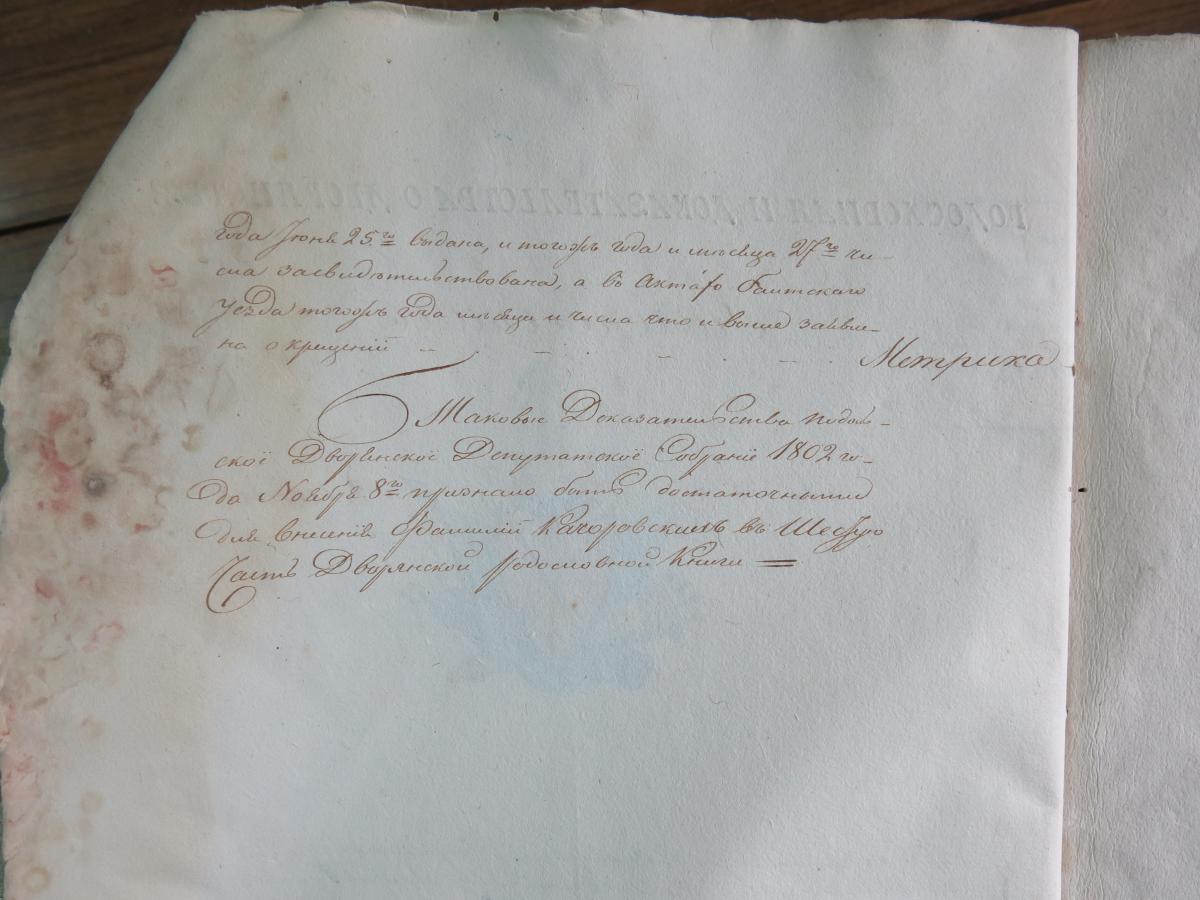 года Іюня 25.го выдана, и тогожъ года и мѣсяца 27го чи-
сла засвидѣтельствована, а въ Актахъ Балтскаго
уезда тогожъ года мѣсяца и числа что и выше заявле-
на о крещеніи — — — — Метрика
Таковые Доказательства Подоль-
ское Дворянское Депутатское Собраніе 1802 го-
да Ноября 8го признало быть достаточными
для внесенія Фамиліи Качоровскихъ въ Шестую
Часть Дворянской родословной Книги =